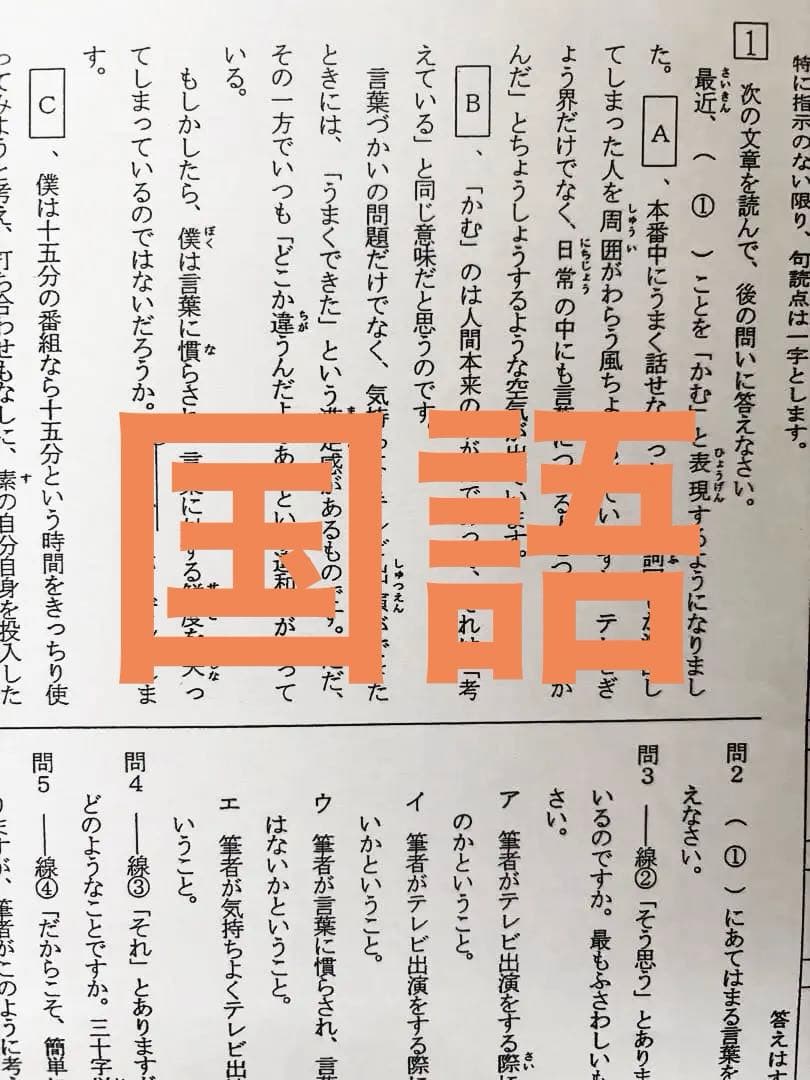 国語
特に指示のない限り、句読点は一字とします。
1 次の文章を読んで、後の問いに答えなさい。
最近、（ ① ）ことを「かむ」と表現するようになりまし
た。 A 、本番中にうまく話せな
てしまった人を周囲がわらう風ち
ょう界だけでなく、日常の中にも言葉に
んだ」とちょうしょうするような空気が出
B 、「かむ」のは人間本来の
えている」と同じ意味だと思うのです。
言葉づかいの問題だけでなく、気持
ときには、「うまくできた」という満足感があるものです。ただ、
その一方でいつも「どこか違うんだよ
いる。
もしかしたら、僕は言葉に慣らさ
てしまっているのではないだろうか。
す。
C 、僕は十五分の番組なら十五分という時間をきっちり使
ってみようと考え、打ち合わせもなしに、素の自分自身を投入した
問2 （ ① ）にあてはまる言葉を
えなさい。
問3 ――線②「そう思う」とあり
いるのですか。最もふさわしいも
さい。
ア 筆者がテレビ出演をする際に
のかということ。
イ 筆者がテレビ出演をする際に
いかということ。
ウ 筆者が言葉に慣らされ、言
はないかということ。
エ 筆者が気持ちよくテレビ出
いうこと。
問4 ――線③「それ」とありますが
どのようなことですか。三十字
問5 ――線④「だからこそ、簡単
りますが、筆者がこのように考
答えはす